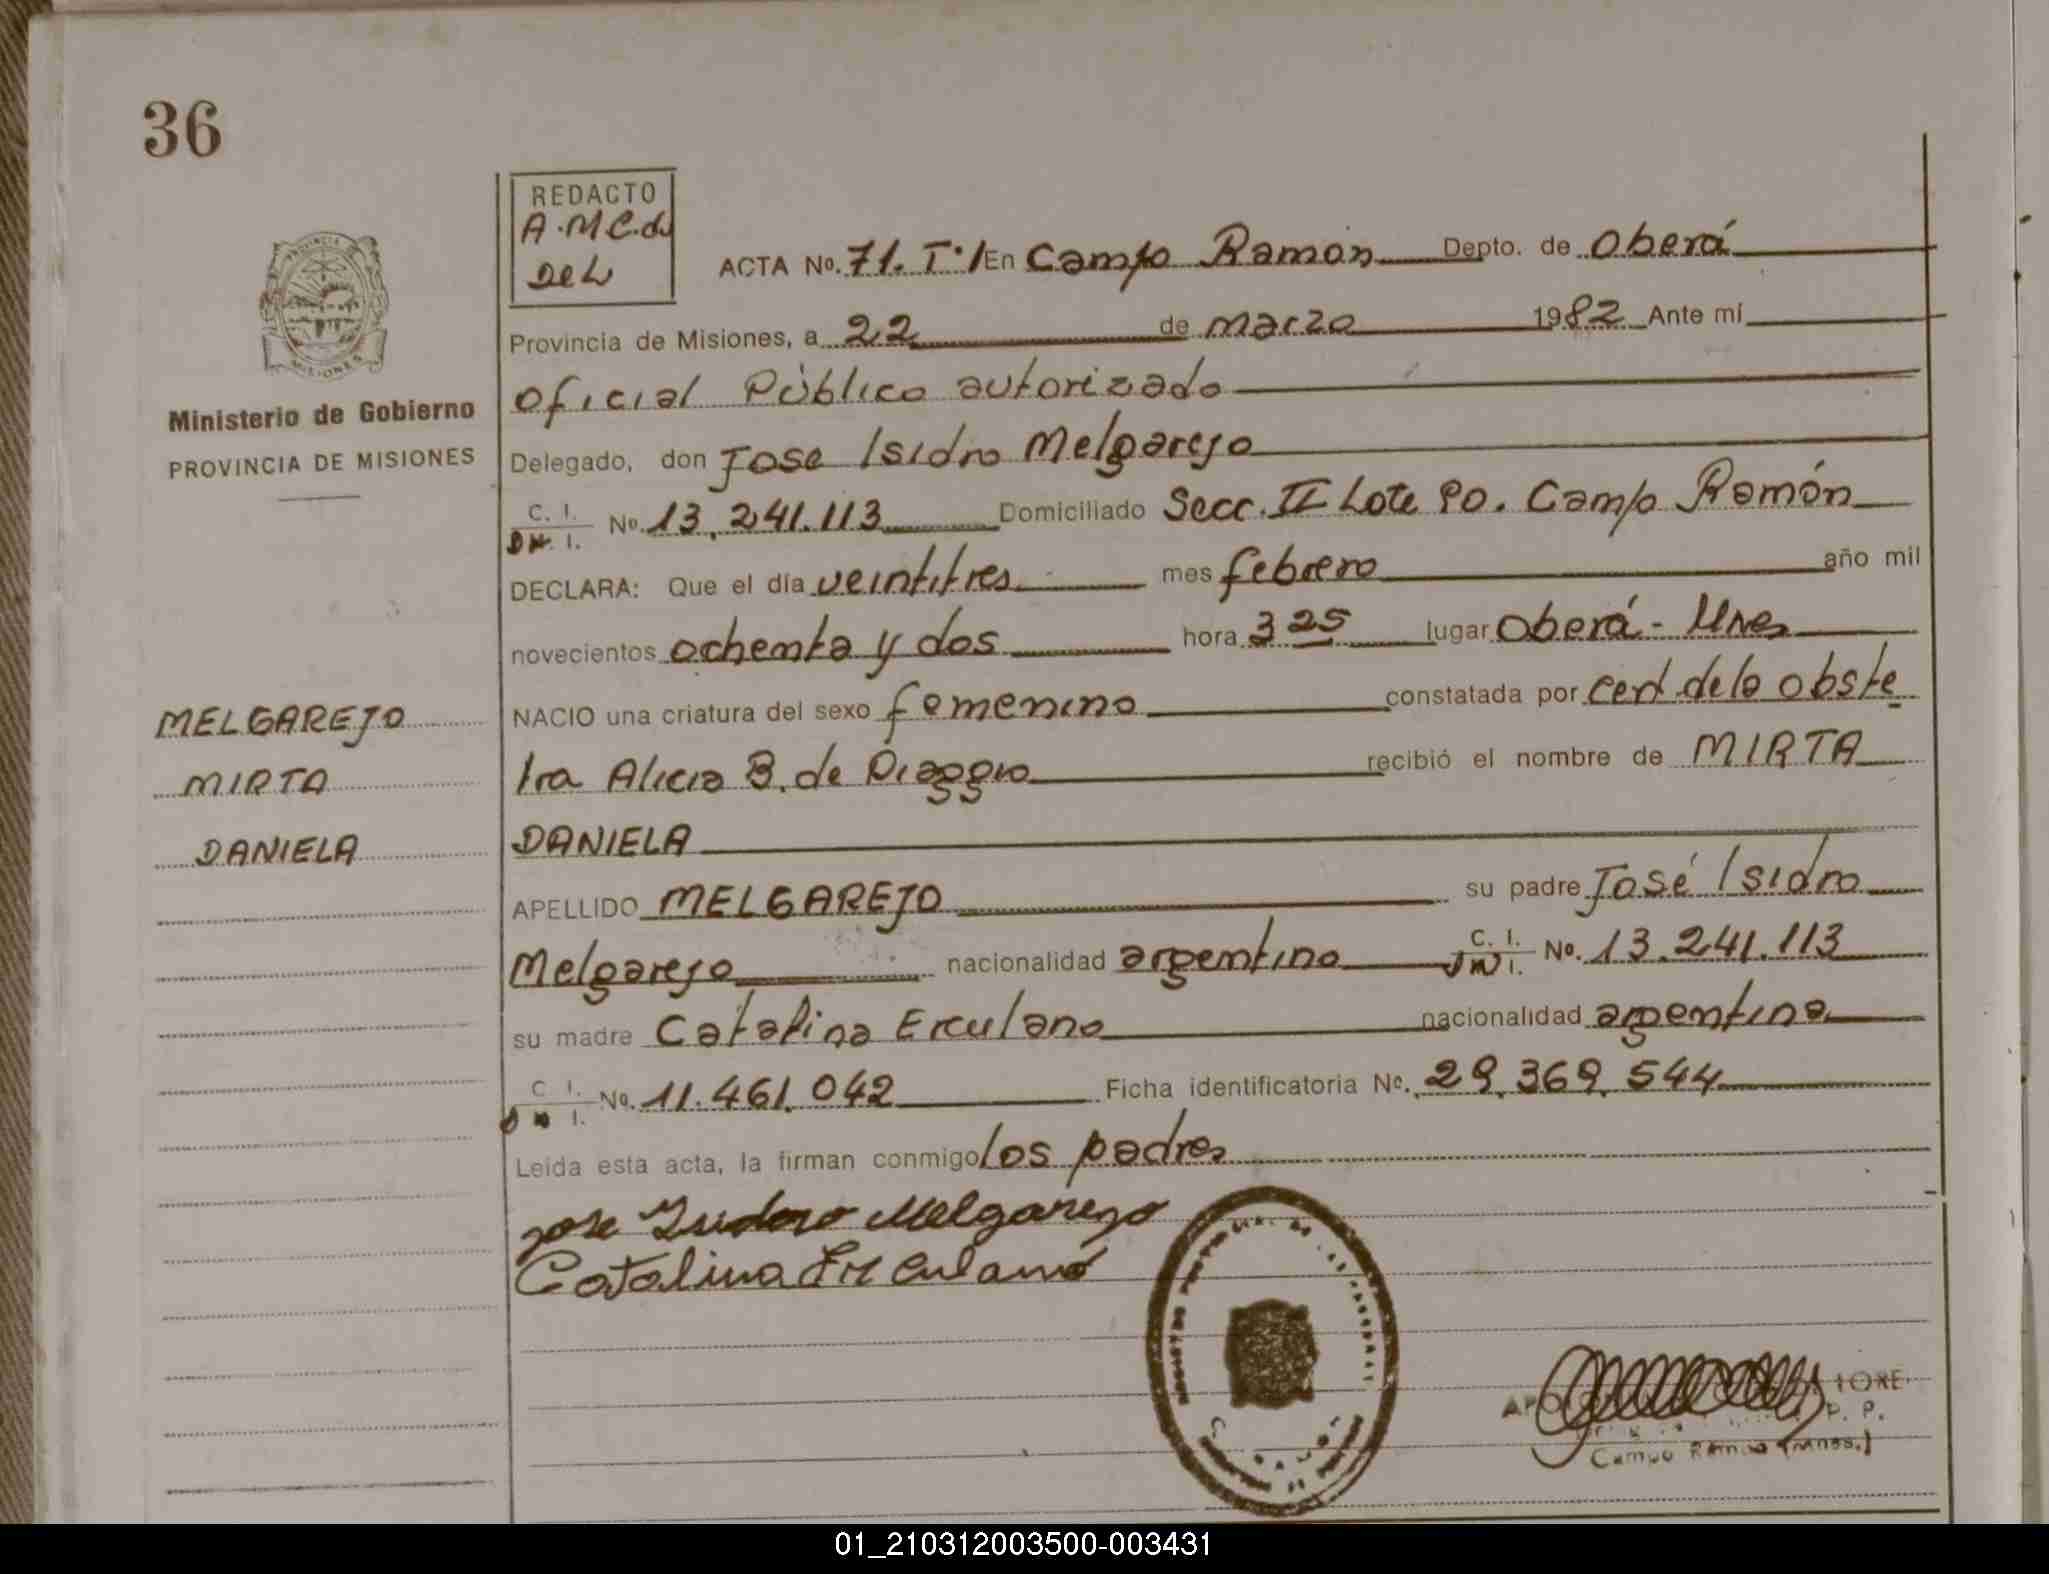 36
REDACTO
A.M.C.de
DeL
ACTA No. 71. Tº1 En Campo Ramón Depto. de Oberá
Provincia de Misiones, a 22 de marzo 1982 Ante mí
Oficial Público autorizado
Delegado, don Jose Isidro Melgarejo
C. I.
DN. I.
No. 13.241.113 Domiciliado Secc. II Lote 90. Campo Ramón
DECLARA: Que el día veintitres mes febrero año mil
novecientos ochenta y dos hora 3 25 lugar Oberá - Mnes
NACIO una criatura del sexo femenino constatada por cert de la obste
tra Alicia B. de Piaggio recibió el nombre de MIRTA
DANIELA
APELLIDO MELGAREJO su padre José Isidro
Melgarejo nacionalidad argentino C. I. DN I. No. 13.241.113
su madre Catalina Erculano nacionalidad argentina
C. I.
DN I.
No. 11.461.042 Ficha identificatoria No. 29.369.544
Leída esta acta, la firman conmigo los padres
Jose Isidoro Melgarejo
Catalina Erculano
PROVINCIA
MISIONES
Ministerio de Gobierno
PROVINCIA DE MISIONES
MELGAREJO
MIRTA
DANIELA
P. P.
Campo Ramón (Mnes.)
01_210312003500-003431